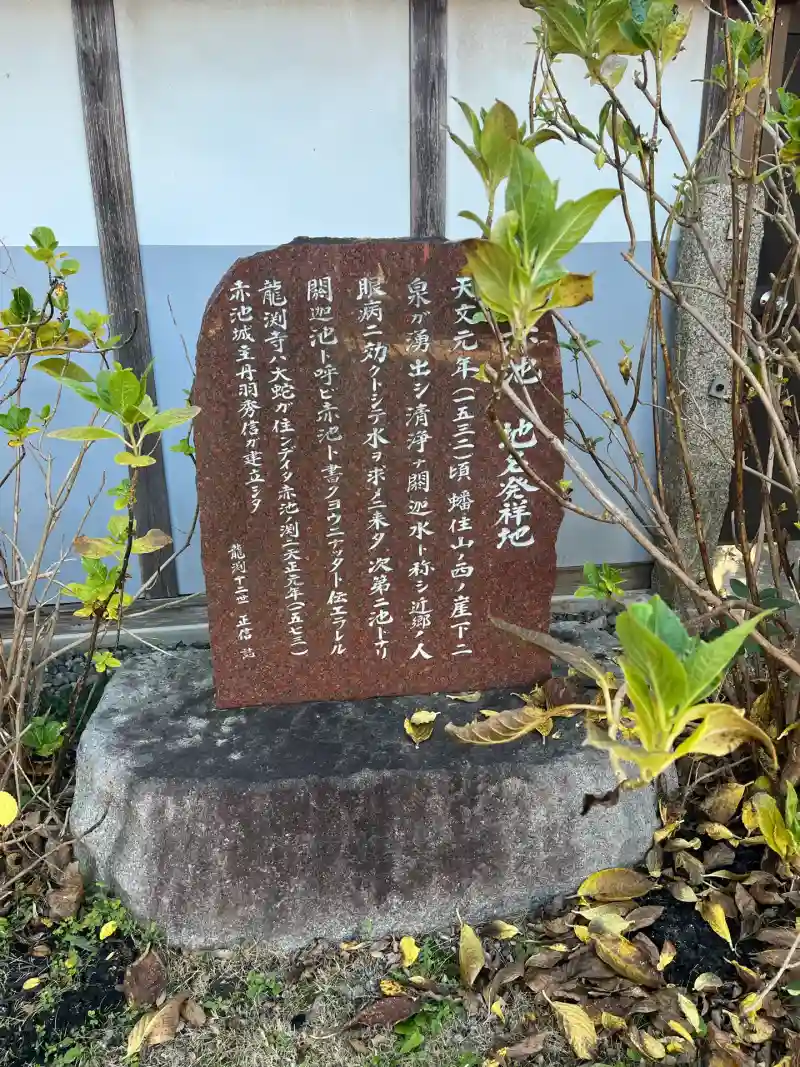 赤池 地名発祥地
天文元年(一五三二)頃蟠住山ノ西ノ崖下ニ
泉ガ湧出シ清浄ナ閼迦水ト称シ近郷ノ人
眼病ニ効クトシテ水ヲ求メニ来タ 次第ニ池トナリ
閼迦池ト呼ビ赤池ト書クヨウニナッタト伝エラレル
龍渕寺ハ大蛇ガ住ンデイタ赤池渕ニ天正元年(一五七三)
赤池城主丹羽秀信ガ建立シタ
龍渕十二世 正信 誌